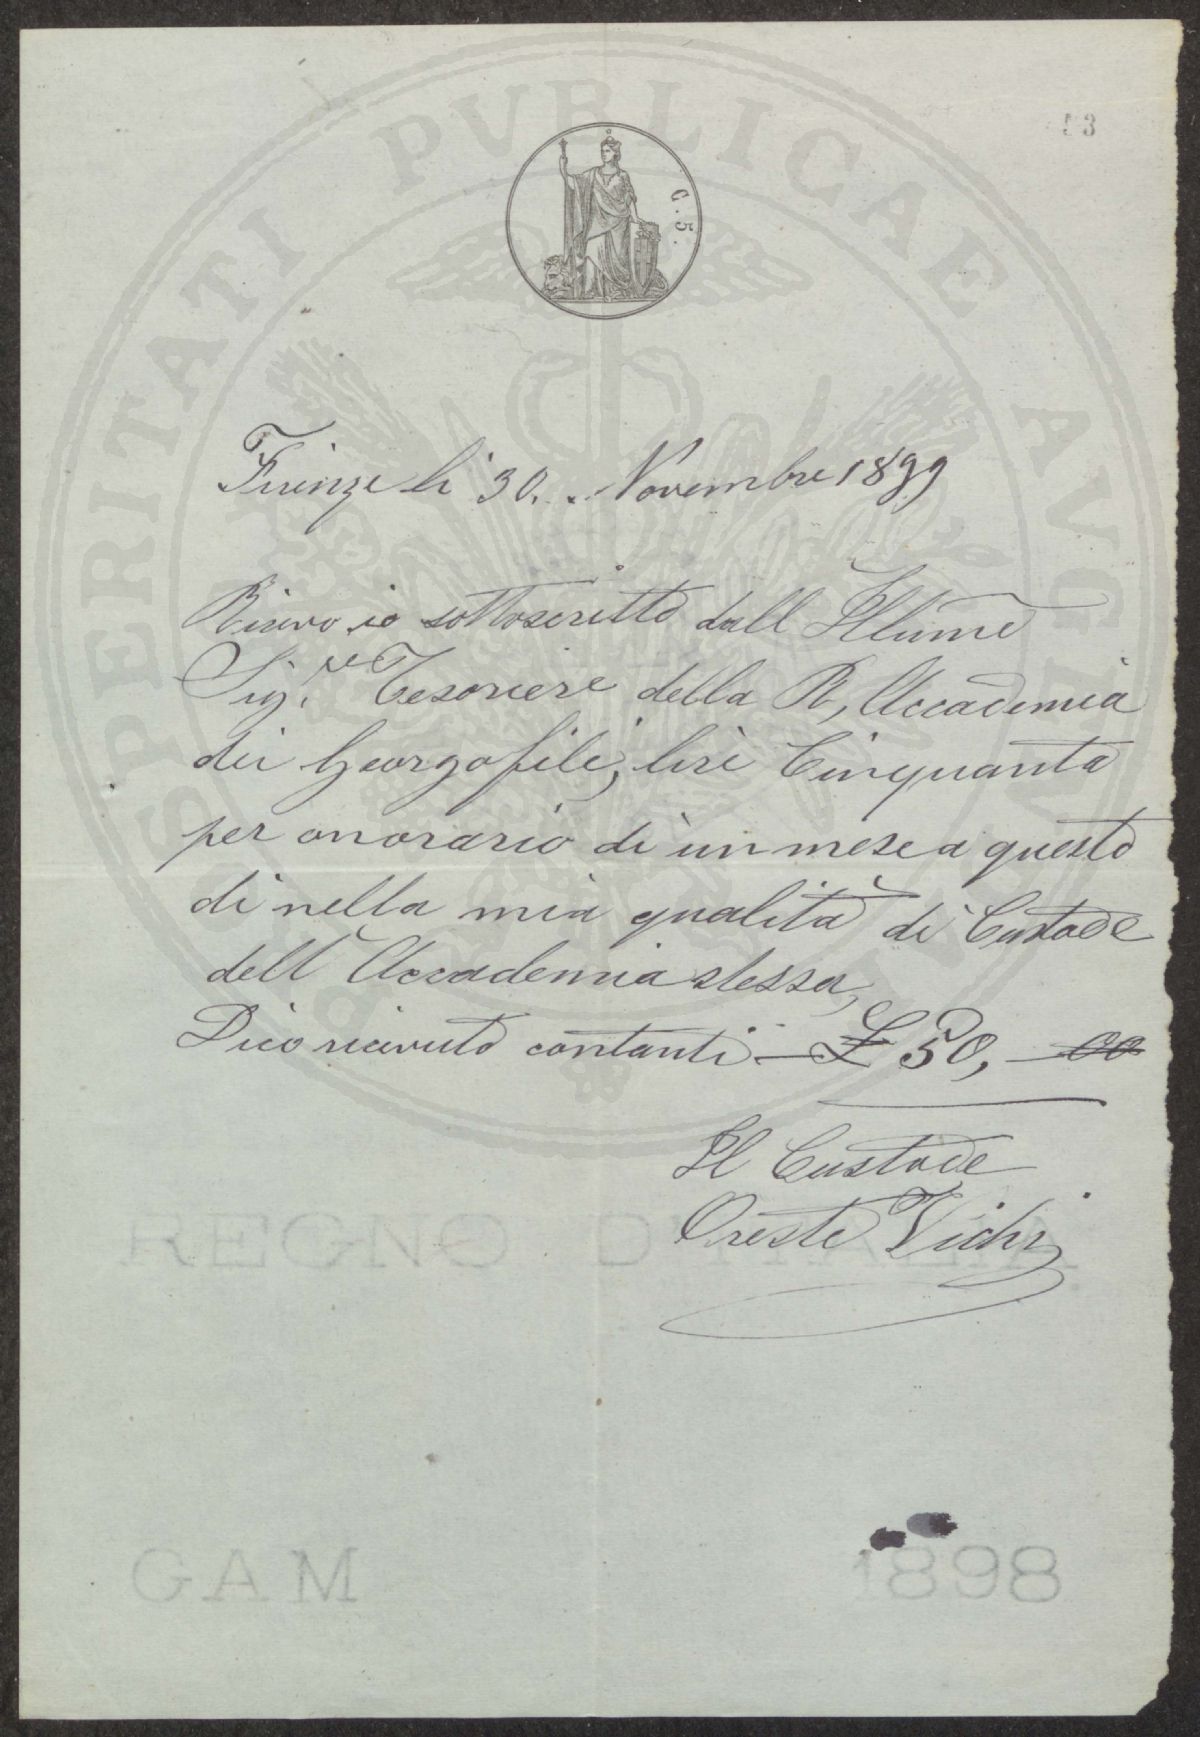 53
PROSPERITATI PVBLICAE AVGENDAE
G. 5.
Firenze li 30.. Novembre 1899
Ricevo io sottoscritto dall Illumo
Sig.re Tesoriere della R, Accademia
dei Georgofili, lire Cinquanta
per onorario di un mese a questo
dì nella mia qualità di Custode
dell Accademia stessa,
Dico ricevuto contanti — £ 50, — 00
Il Custode
Oreste Vichi
REGNO D'ITALIA
GAM 1898